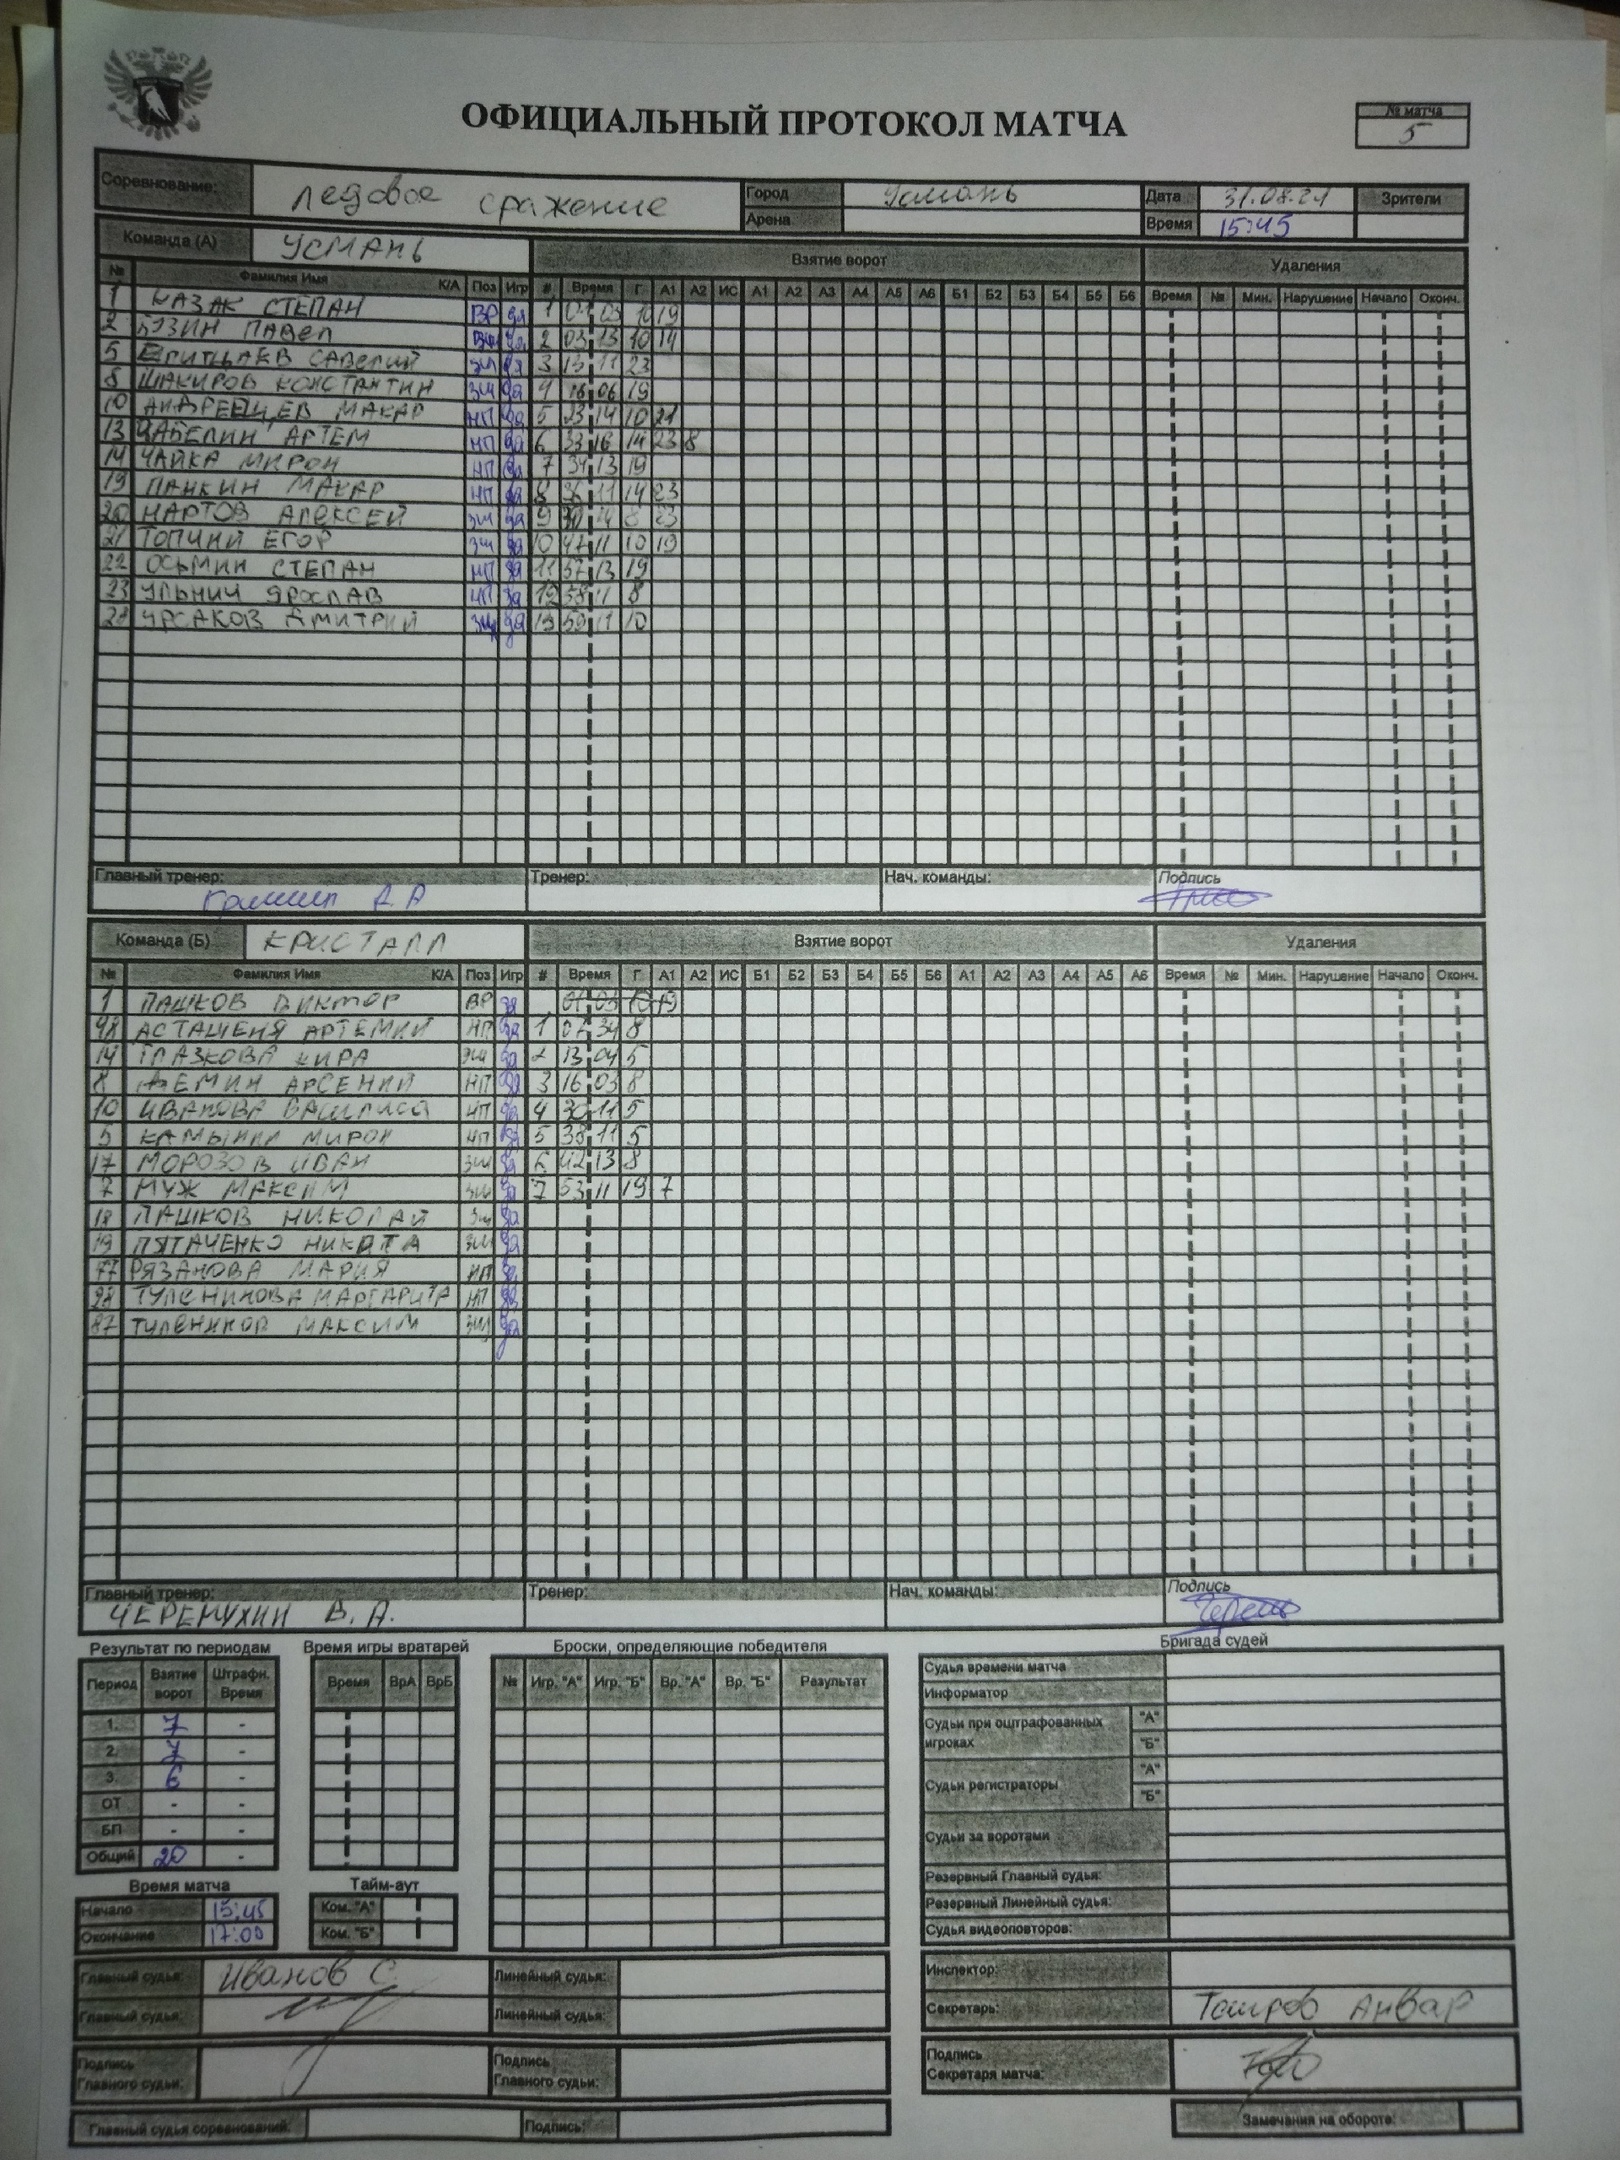 ОФИЦИАЛЬНЫЙ ПРОТОКОЛ МАТЧА
№ матча
5
Соревнование: Ледовое сражение Город Усмань Дата 31.08.21 Зрители
Арена Время 15:45
Команда (А) УСМАНЬ Взятие ворот Удаления
№ Фамилия Имя К/А Поз Игр # Время Г А1 А2 ИС А1 А2 А3 А4 А5 А6 Б1 Б2 Б3 Б4 Б5 Б6 Время № Мин. Нарушение Начало Оконч.
1 КАЗАК СТЕПАН ВР да 1 01 03 10 19
2 БУЗИН ПАВЕЛ да 2 03 13 10 14
5 САВЕЛИЙ ЗЩ да 3 15 11 23
8 ШАКИРОВ КОНСТАНТИН ЗЩ да 4 16 06 19
10 АНДРЕЕЩЕВ МАКАР НП да 5 23 14 10 21
13 ЧАБЕЛИН АРТЕМ НП да 6 33 16 14 23 8
14 ЧАЙКА МИРОН НП да 7 34 13 19
19 ПАНКИН МАКАР НП да 8 36 11 14 23
20 НАРТОВ АЛЕКСЕЙ ЗЩ да 9 14 8 23
21 ТОПЧИЙ ЕГОР ЗЩ да 10 47 11 10 19
22 ОСЬМИН СТЕПАН НП да 11 57 13 19
23 УЛЬНИЧ ЯРОСЛАВ НП да 12 58 11 8
УРСАКОВ ДМИТРИЙ ЗЩ да 13 59 11 10
Главный тренер: Тренер: Нач. команды: Подпись
А.А
Команда (Б) КРИСТАЛЛ Взятие ворот Удаления
№ Фамилия Имя К/А Поз Игр # Время Г А1 А2 ИС Б1 Б2 Б3 Б4 Б5 Б6 А1 А2 А3 А4 А5 А6 Время № Мин. Нарушение Начало Оконч.
1 ПАШКОВ ВИКТОР ВР да 01 03 10 19
98 АСТАШЕНЯ АРТЕМИЙ НП да 1 07 34 8
14 ГЛАЗКОВА КИРА ЗЩ да 2 13 04 5
8 ДЕМИН АРСЕНИЙ НП да 3 16 03 8
10 ИВАНОВА ВАСИЛИСА НП да 4 30 11 5
5 КАМЫНИН МИРОН НП да 5 38 11 5
17 МОРОЗОВ ИВАН ЗЩ да 6 42 13 8
7 МУЖ МАКСИМ ЗЩ да 7 53 11 19 7
18 ПАШКОВ НИКОЛАЙ ЗЩ да
19 ПЯТАЧЕНКО НИКИТА ЗЩ да
77 РЯЗАНОВА МАРИЯ НП да
28 ТУЛЕНИНОВА МАРГАРИТА НП да
87 ТУЛЕНИНОВ МАКСИМ ЗЩ да
Главный тренер: Тренер: Нач. команды: Подпись
ЧЕРЕМУХИН В. А.
Результат по периодам Время игры вратарей Броски, определяющие победителя Бригада судей
Период Взятие ворот Штрафн. Время Время ВрА ВрБ № Игр. "А" Игр. "Б" Вр. "А" Вр. "Б" Результат
Судья времени матча
Информатор
1. 7 -
2. 7 -
3. 6 -
ОТ - -
БП - -
Общий 20 -
Судьи при оштрафованных игроках "А" "Б"
Судьи регистраторы "А" "Б"
Судьи за воротами
Резервный Главный судья:
Резервный Линейный судья:
Судья видеоповторов:
Время матча Тайм-аут
Начало 15:45 Ком. "А"
Окончание 17:00 Ком. "Б"
Главный судья: Иванов С Линейный судья: Инспектор:
Главный судья: Линейный судья: Секретарь: Таиров Анвар
Подпись Главного судьи: Подпись Главного судьи: Подпись Секретаря матча:
Главный судья соревнований: Подпись: Замечания на обороте: